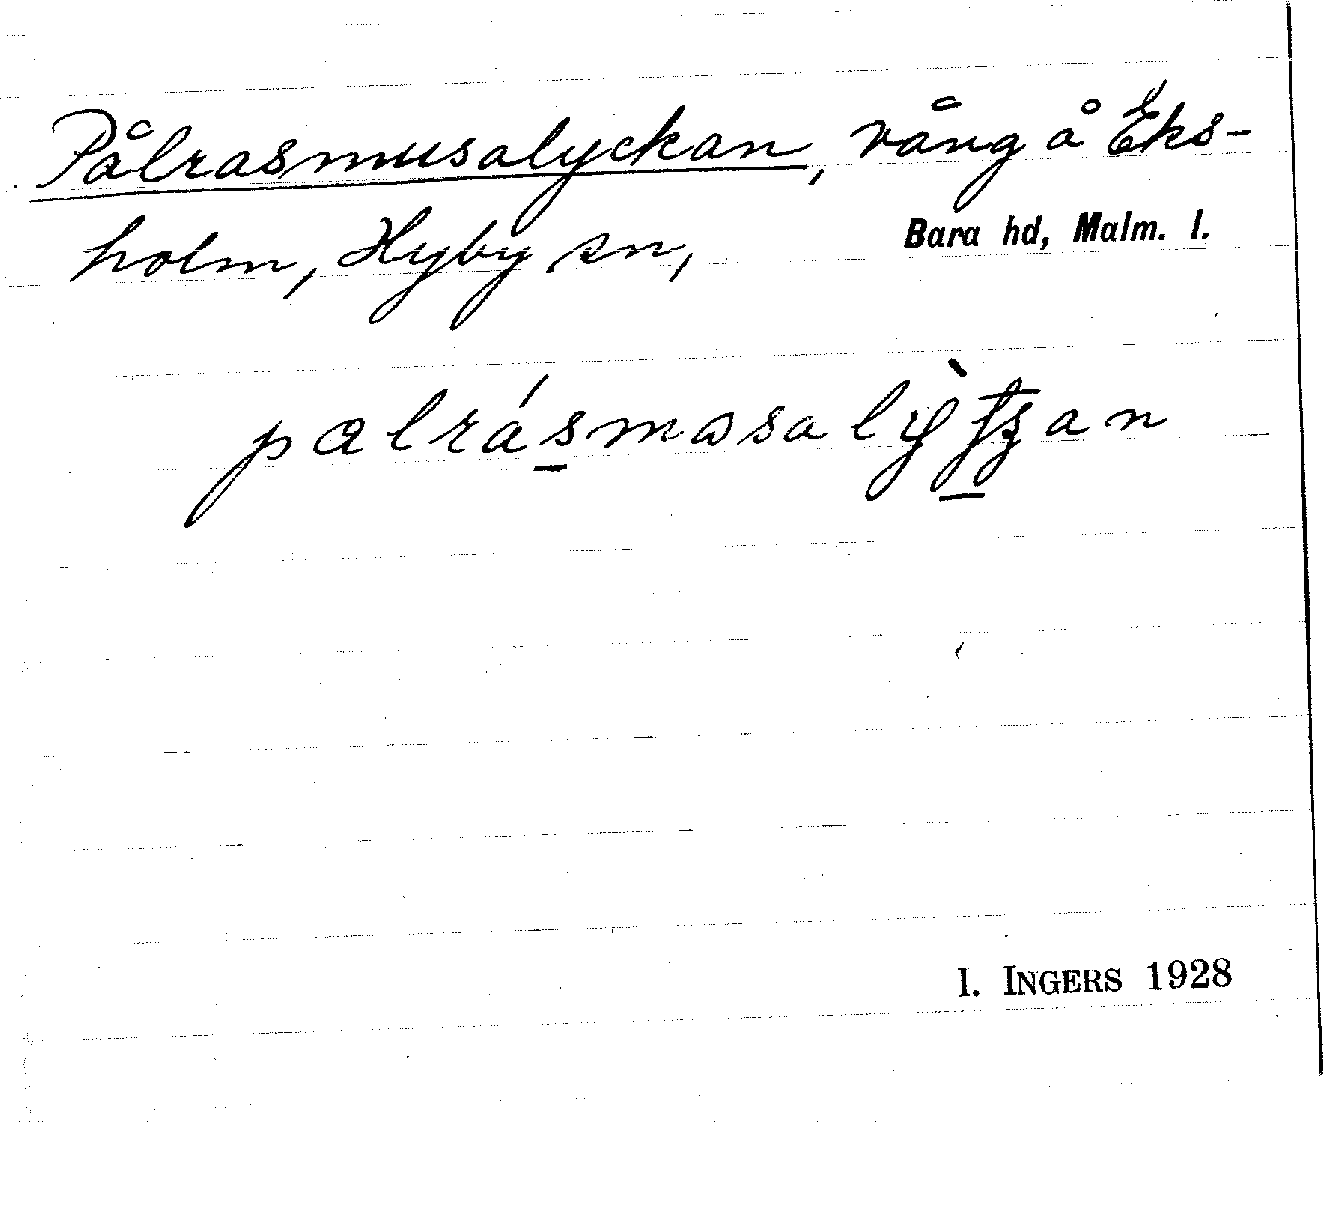 Pålrasmusalyckan, vång å Eks-
holm, Hyby sn, Bara hd, Malm. l.
I. INGERS 1928